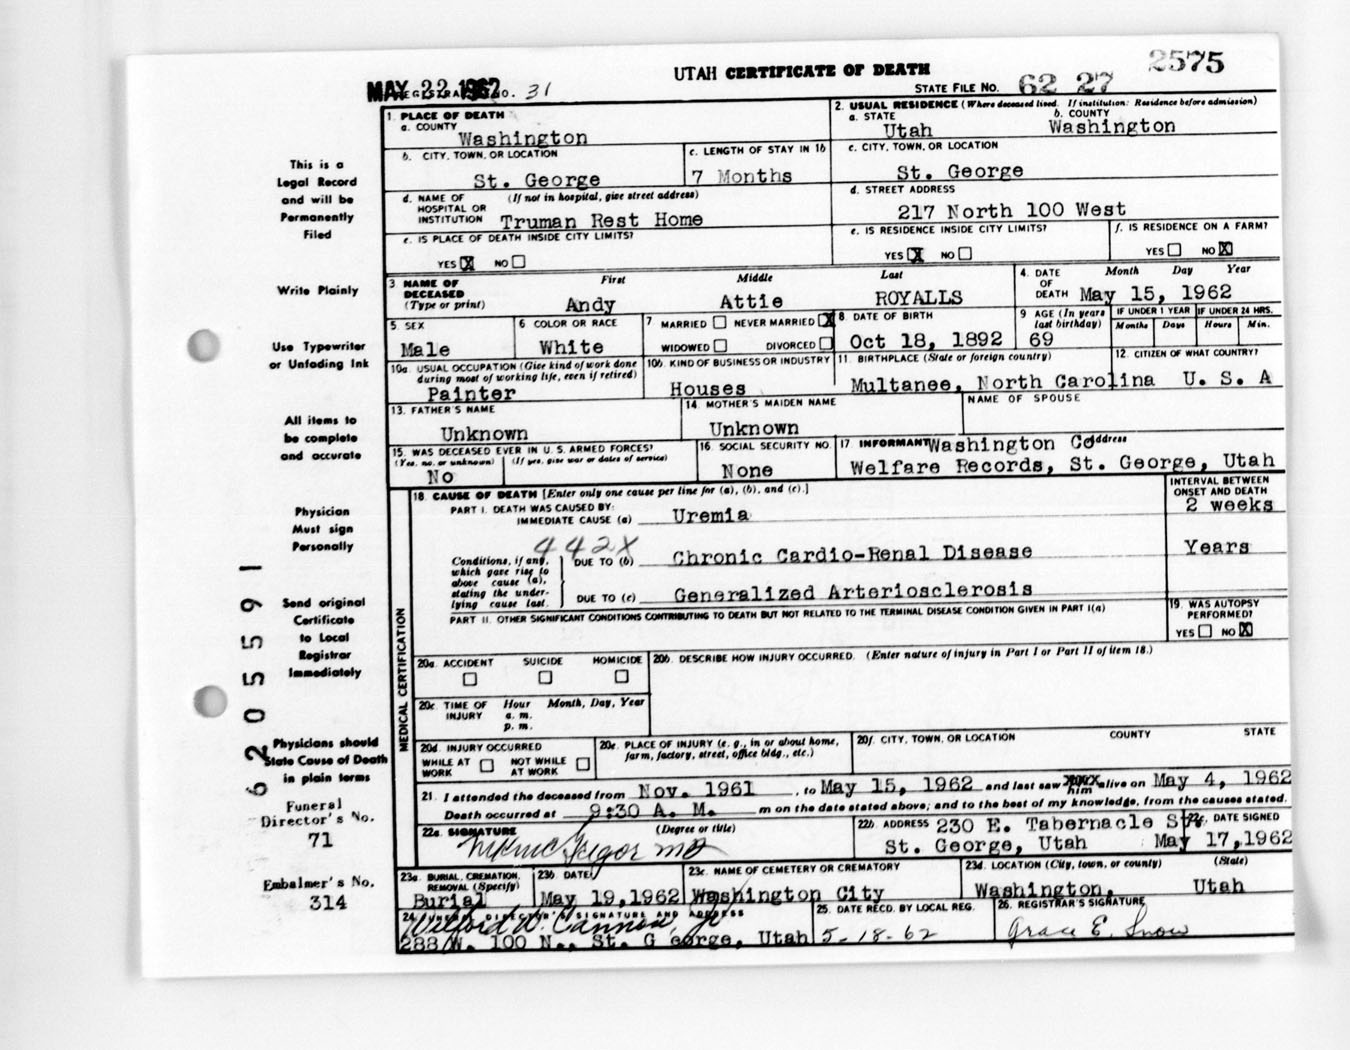 2575
UTAH CERTIFICATE OF DEATH
MAY 22 1962
REGISTRAR'S NO. 31
STATE FILE NO. 62 27
This is a
Legal Record
and will be
Permanently
Filed
Write Plainly
Use Typewriter
or Unfading Ink
All items to
be complete
and accurate
Physician
Must sign
Personally
Send original
Certificate
to Local
Registrar
Immediately
Physicians should
State Cause of Death
in plain terms
Funeral
Director's No.
71
Embalmer's No.
314
6205591
1. PLACE OF DEATH
a. COUNTY
Washington
2. USUAL RESIDENCE (Where deceased lived. If institution: Residence before admission)
a. STATE b. COUNTY
Utah Washington
b. CITY, TOWN, OR LOCATION
St. George
c. LENGTH OF STAY IN 1b
7 Months
c. CITY, TOWN, OR LOCATION
St. George
d. NAME OF (If not in hospital, give street address)
HOSPITAL OR
INSTITUTION Truman Rest Home
d. STREET ADDRESS
217 North 100 West
e. IS PLACE OF DEATH INSIDE CITY LIMITS?
YES X NO
e. IS RESIDENCE INSIDE CITY LIMITS?
YES X NO
f. IS RESIDENCE ON A FARM?
YES NO X
3 NAME OF First Middle Last
DECEASED
(Type or print) Andy Attie ROYALLS
4. DATE Month Day Year
OF
DEATH May 15, 1962
5. SEX
Male
6 COLOR OR RACE
White
7 MARRIED NEVER MARRIED X
WIDOWED DIVORCED
8 DATE OF BIRTH
Oct 18, 1892
9 AGE (In years
last birthday)
69
IF UNDER 1 YEAR IF UNDER 24 HRS.
Months Days Hours Min.
10a. USUAL OCCUPATION (Give kind of work done
during most of working life, even if retired)
Painter
10b. KIND OF BUSINESS OR INDUSTRY
Houses
11. BIRTHPLACE (State or foreign country)
Multanee, North Carolina
12. CITIZEN OF WHAT COUNTRY?
U. S. A
13. FATHER'S NAME
Unknown
14. MOTHER'S MAIDEN NAME
Unknown
NAME OF SPOUSE
15. WAS DECEASED EVER IN U. S. ARMED FORCES?
(Yes, no, or unknown) (If yes, give war or dates of service)
No
16. SOCIAL SECURITY NO.
None
17 INFORMANT Washington Co Address
Welfare Records, St. George, Utah
MEDICAL CERTIFICATION
18. CAUSE OF DEATH [Enter only one cause per line for (a), (b), and (c).]
INTERVAL BETWEEN
ONSET AND DEATH
PART I. DEATH WAS CAUSED BY:
IMMEDIATE CAUSE (a) Uremia 2 weeks
442X
Conditions, if any,
which gave rise to
above cause (a),
stating the under-
lying cause last.
DUE TO (b) Chronic Cardio-Renal Disease Years
DUE TO (c) Generalized Arteriosclerosis
PART II. OTHER SIGNIFICANT CONDITIONS CONTRIBUTING TO DEATH BUT NOT RELATED TO THE TERMINAL DISEASE CONDITION GIVEN IN PART I(a)
19. WAS AUTOPSY
PERFORMED?
YES NO X
20a. ACCIDENT SUICIDE HOMICIDE
20b. DESCRIBE HOW INJURY OCCURRED. (Enter nature of injury in Part I or Part II of item 18.)
20c. TIME OF Hour Month, Day, Year
INJURY a. m.
p. m.
20d. INJURY OCCURRED
WHILE AT NOT WHILE
WORK AT WORK
20e. PLACE OF INJURY (e. g., in or about home,
farm, factory, street, office bldg., etc.)
20f. CITY, TOWN, OR LOCATION COUNTY STATE
21. I attended the deceased from Nov. 1961, to May 15, 1962 and last saw him alive on May 4, 1962
Death occurred at 9:30 A. M. m on the date stated above; and to the best of my knowledge, from the causes stated.
22a. SIGNATURE (Degree or title)
MD
22b. ADDRESS 230 E. Tabernacle St.
St. George, Utah
22c. DATE SIGNED
May 17, 1962
23a. BURIAL, CREMATION,
REMOVAL (Specify)
Burial
23b. DATE
May 19, 1962
23c. NAME OF CEMETERY OR CREMATORY
Washington City
23d. LOCATION (City, town, or county) (State)
Washington, Utah
24. FUNERAL DIRECTOR'S SIGNATURE AND ADDRESS
Wilford W. Cannon Jr
288 W. 100 N., St. George, Utah
25. DATE RECD. BY LOCAL REG.
5-18-62
26. REGISTRAR'S SIGNATURE
Grace E. Snow